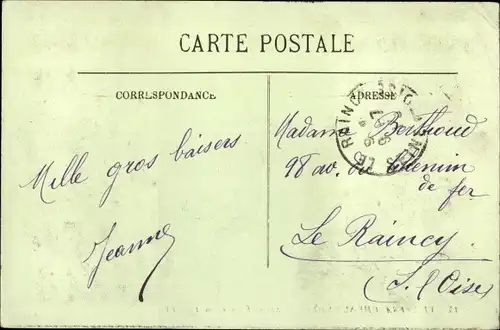 CARTE POSTALE
CORRESPONDANCE
ADRESSE
Mille gros baisers
Jeanne
Madame Berthoud
98 av. du Chemin
de fer
Le Raincy
(S. &